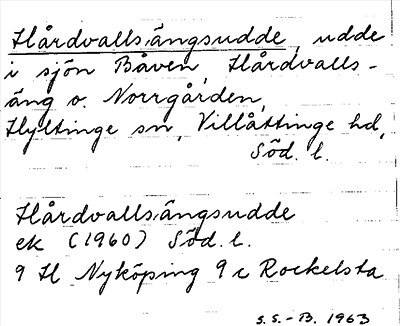 Hårdvallsängsudde, udde
i sjön Båven, Hårdvalls-
äng o. Norrgården,
Hyltinge sn, Villåttinge hd,
Söd. l.
Hårdvallsängsudde
ek (1960) Söd. l.
9 H Nyköping 9 c Rockelsta
S.S.-B. 1963